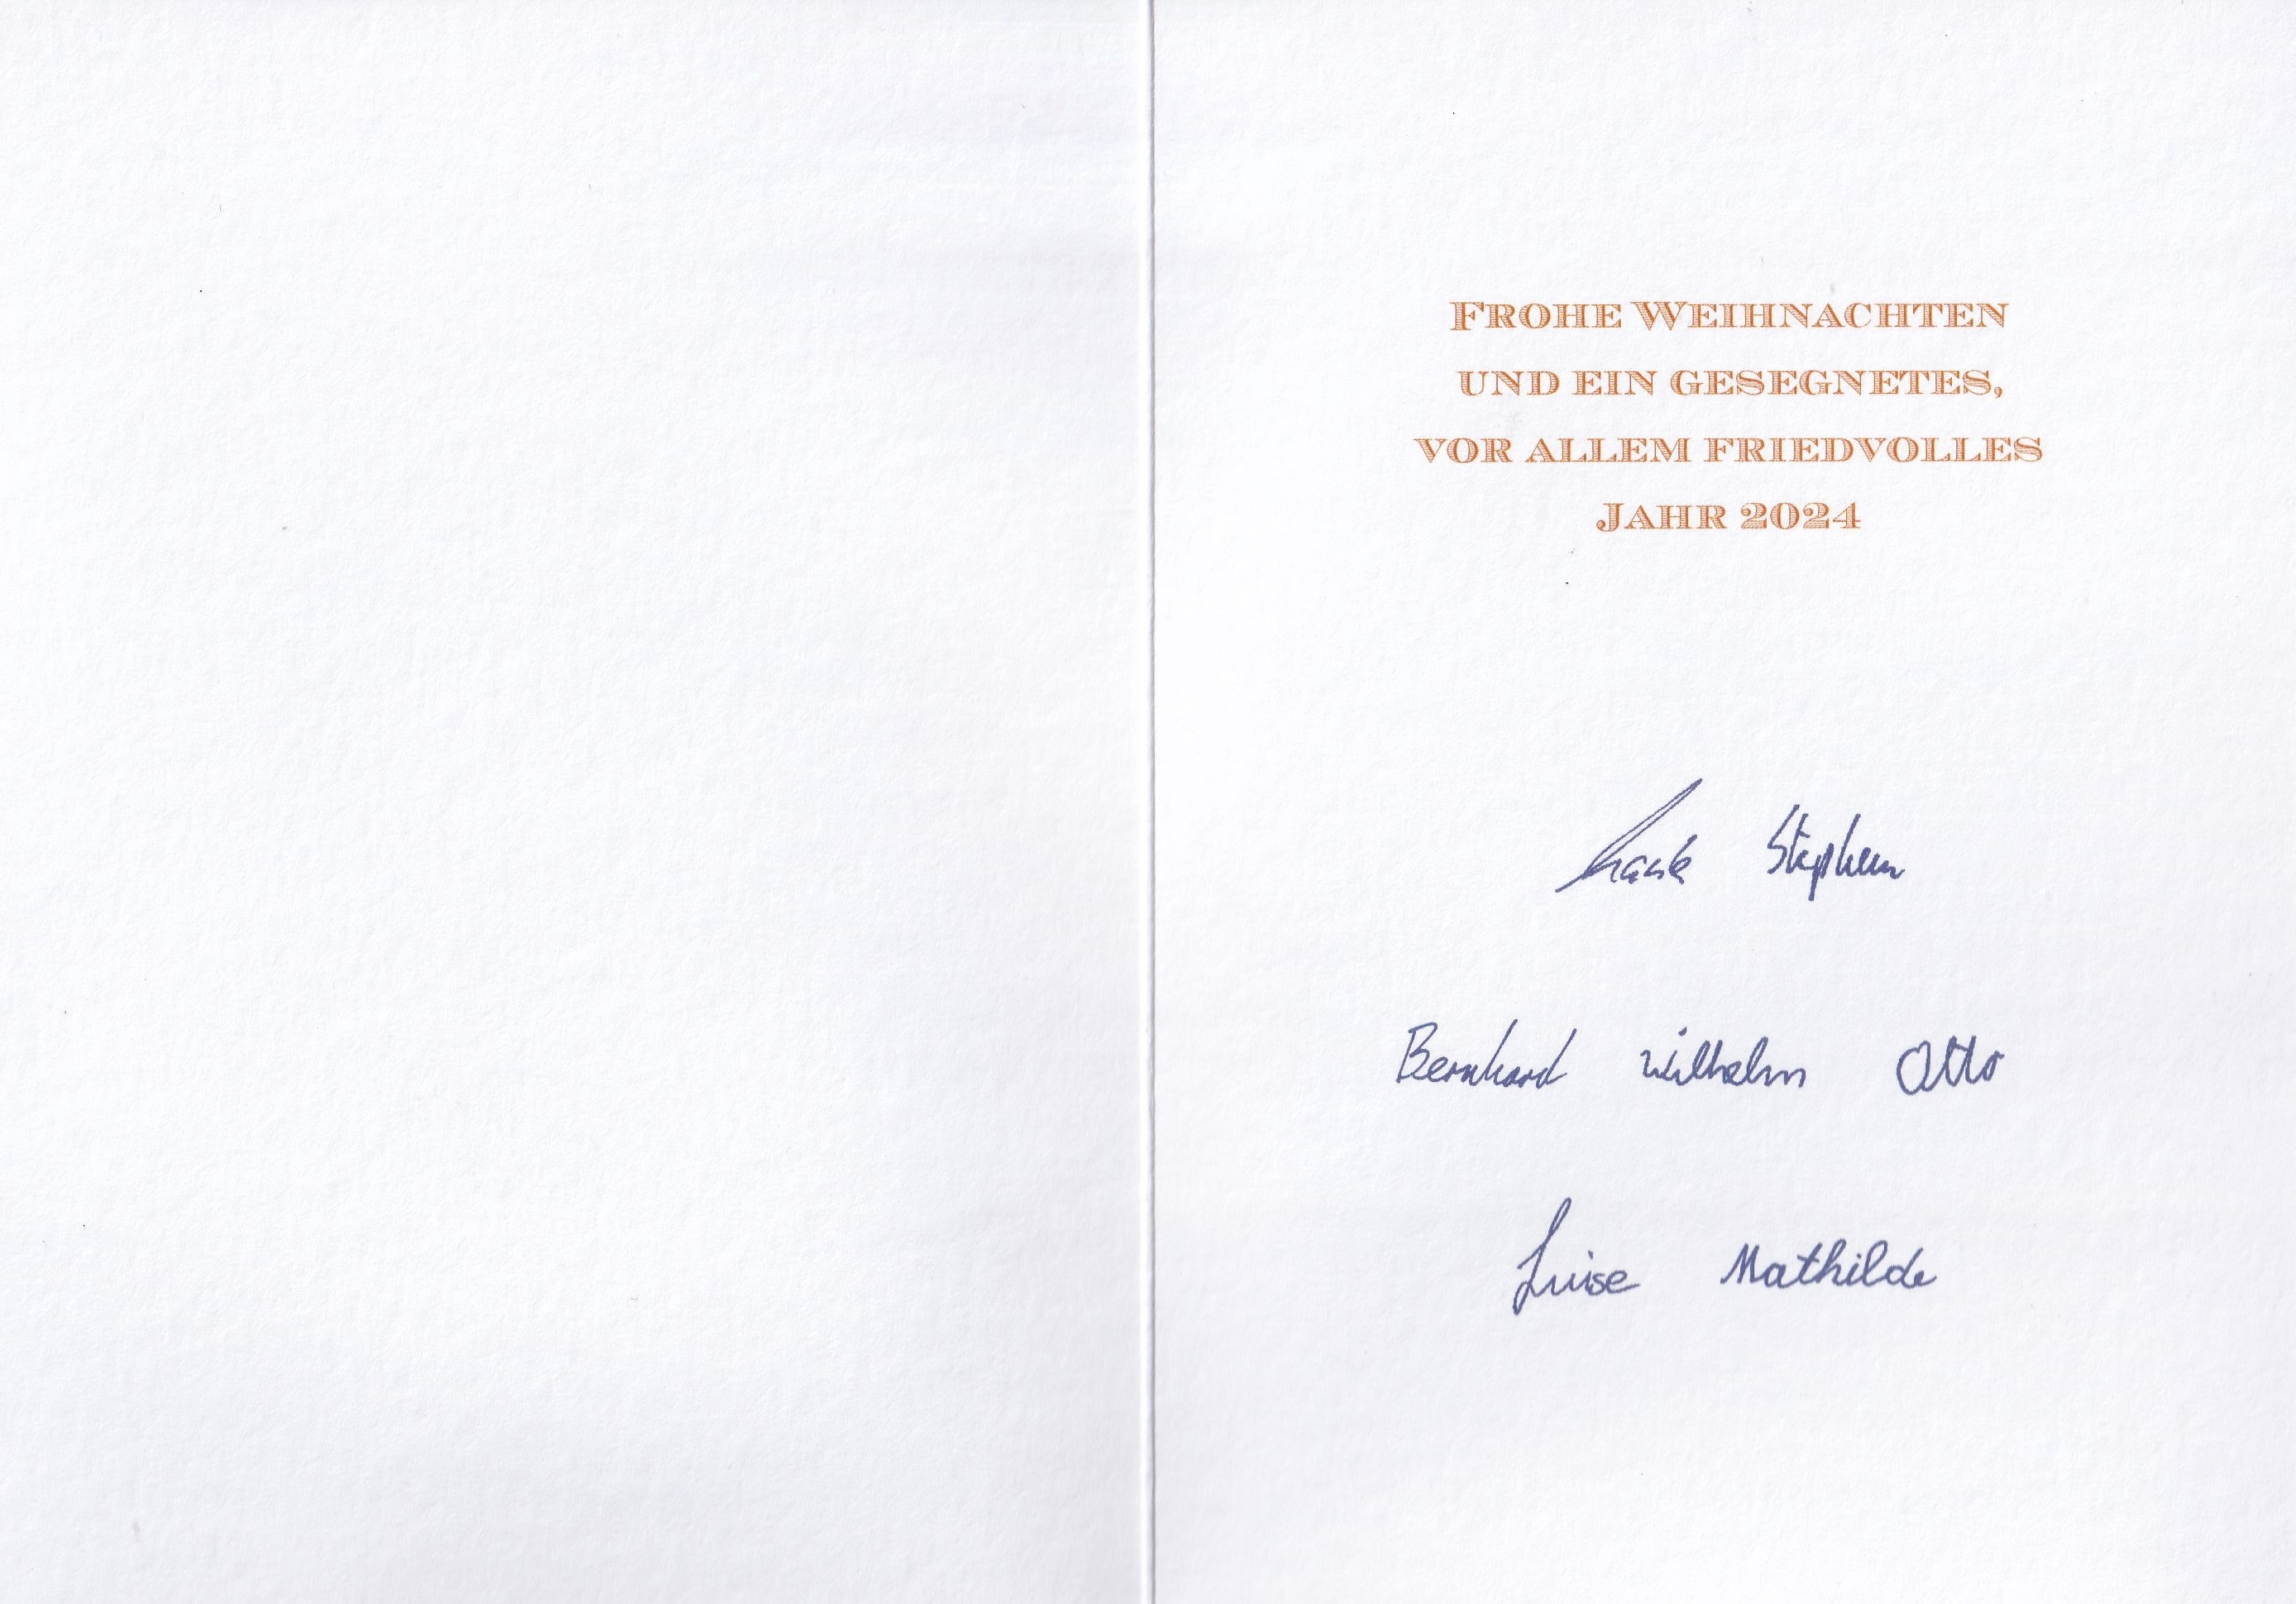 Frohe Weihnachten
und ein gesegnetes,
vor allem friedvolles
Jahr 2024
Stephan
Bernhard Wilhelm Otto
Luise Mathilde